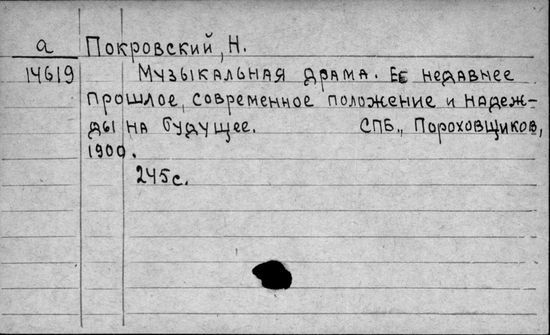 а Покровский, Н.
14619 Музыкальная драма. Её недавнее
прошлое, современное положение и надеж-
ды на будущее. СПБ., Пороховщиков,
1900.
245 с.